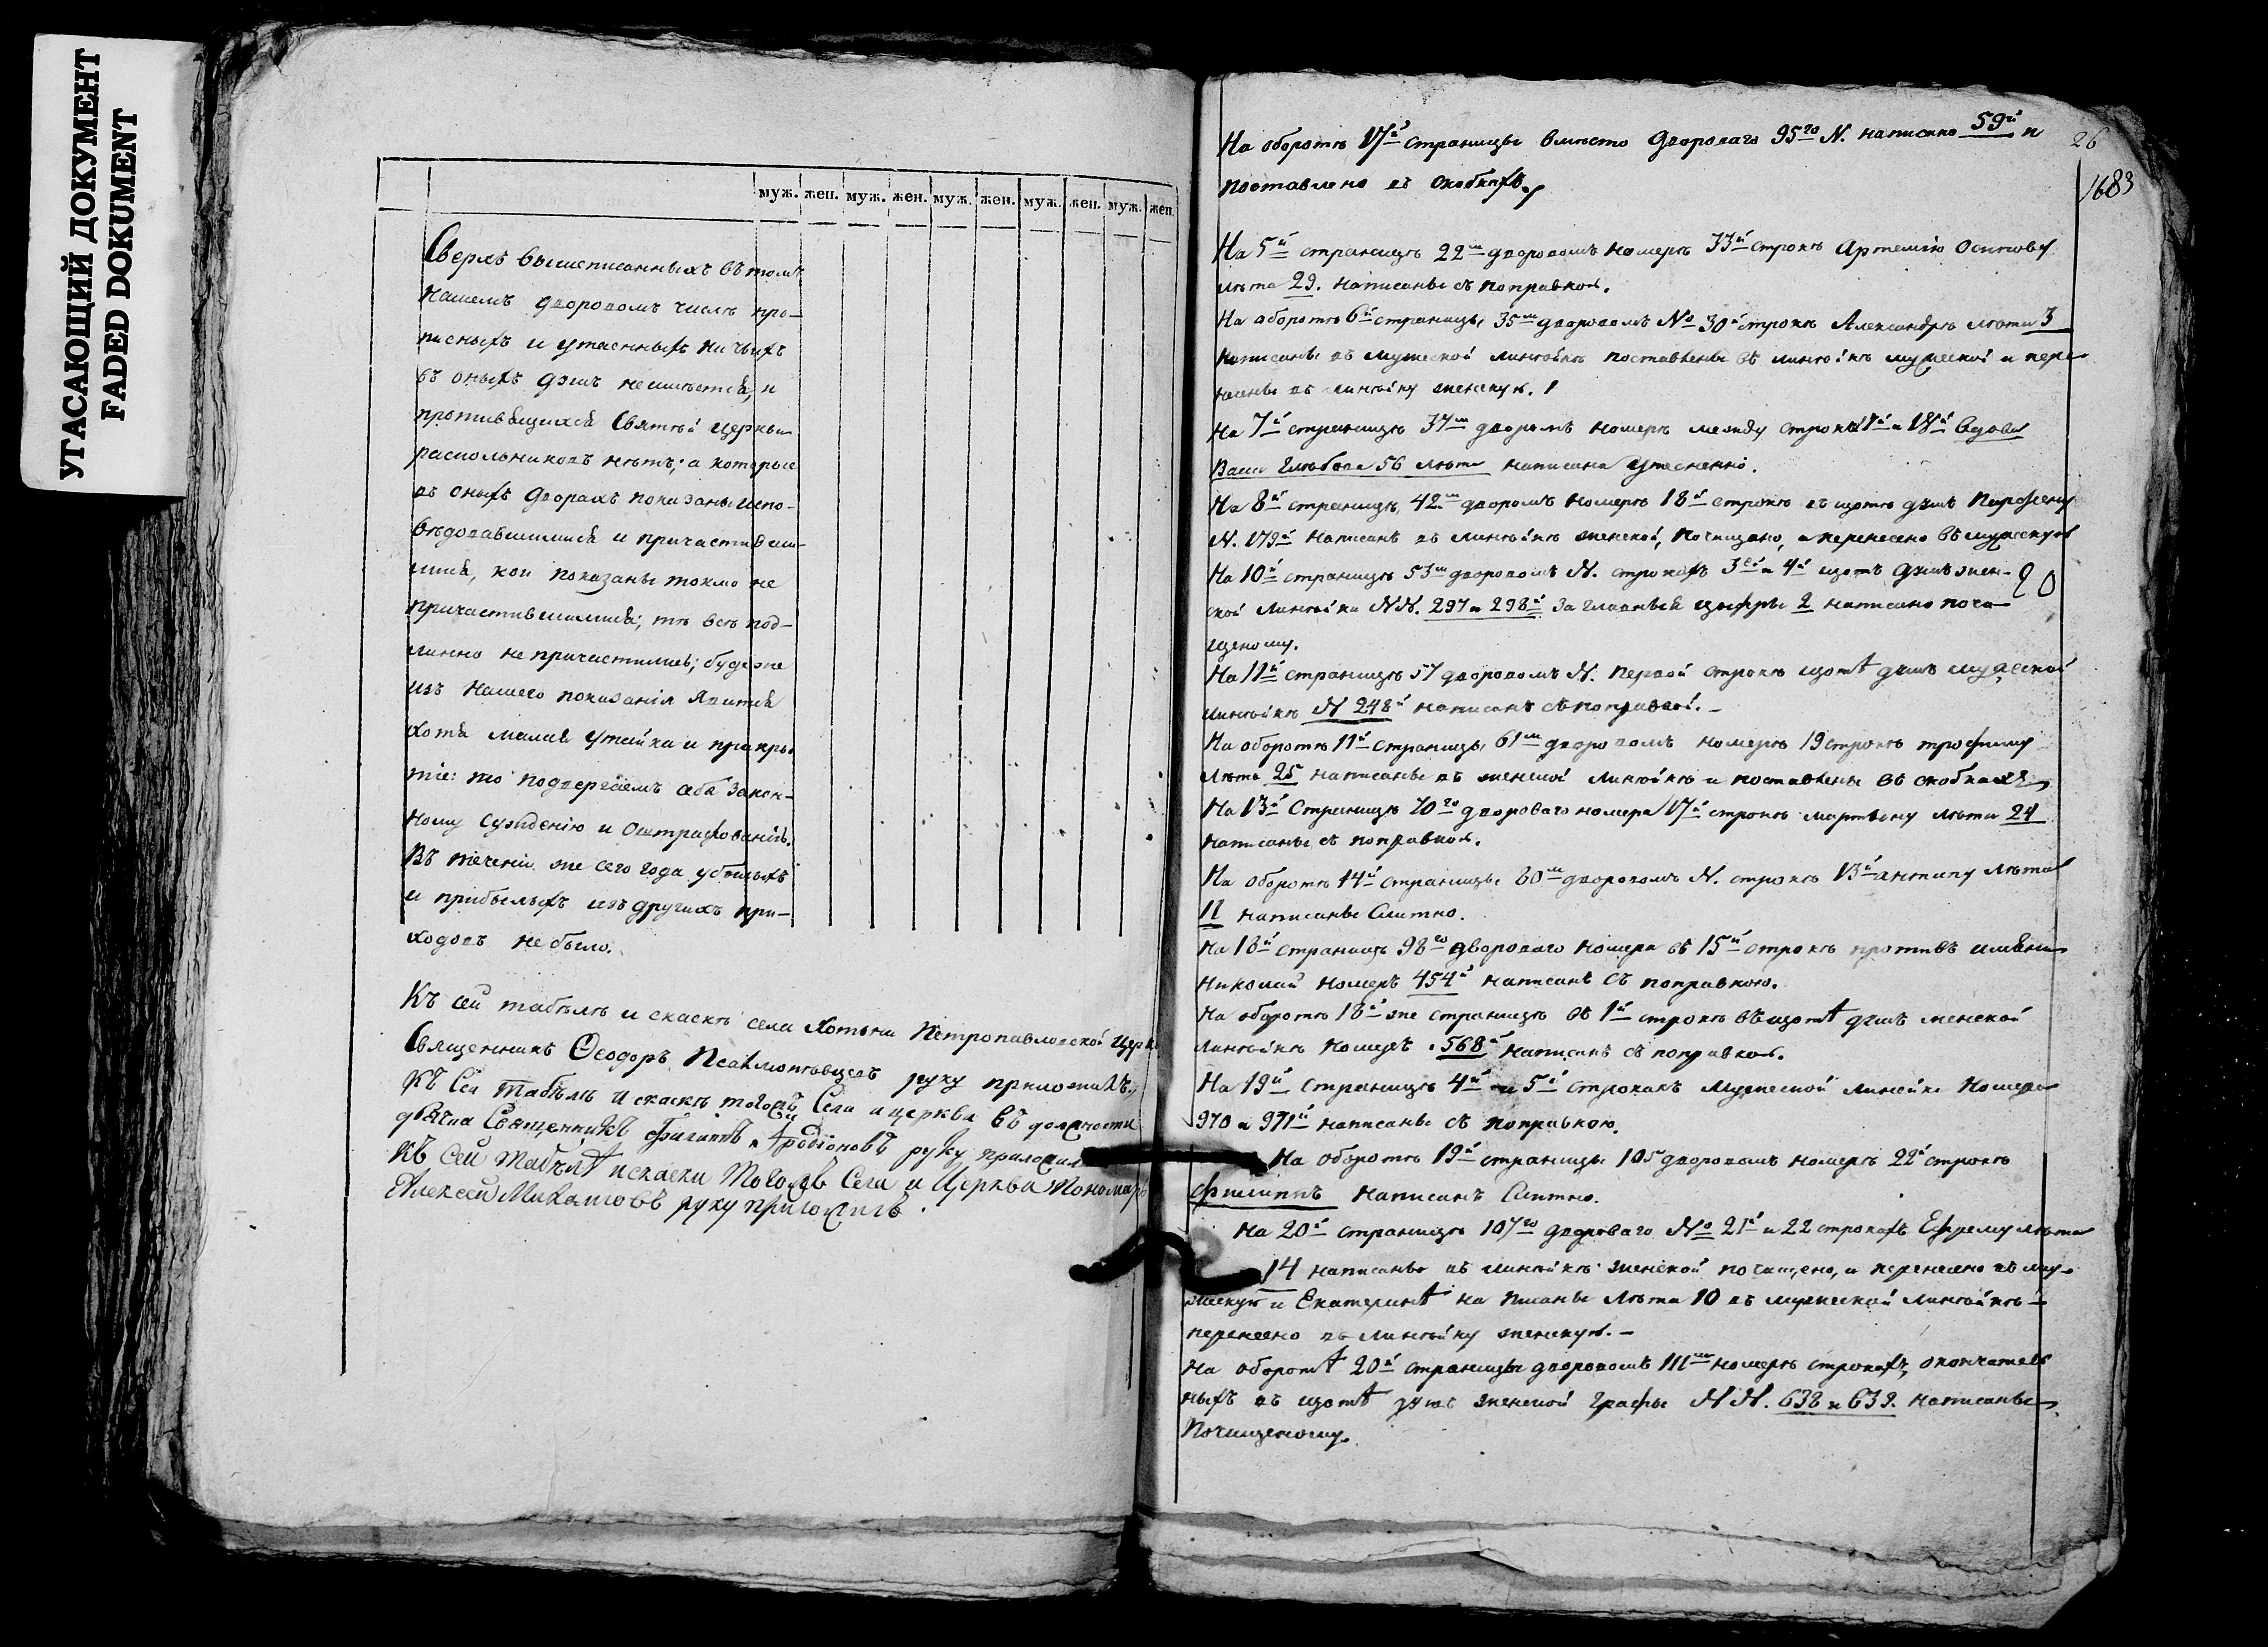 УГАСАЮЩИЙ ДОКУМЕНТ
FADED DOKUMENT
муж. жен. муж. жен. муж. жен. муж. жен. муж. жен.
Сверхъ вышеписанныхъ въ томъ
нашемъ дворовомъ числѣ про-
писныхъ и утаенныхъ ничьихъ
въ оныхъ душъ неимѣется, и
противящихся Святѣй церкви
раскольниковъ нѣтъ; а которые
въ оныхъ дворахъ показаны испо-
вѣдовавшимися и причастивши-
мися, кои показаны токмо не
причастившимися; тѣ всѣ под-
линно непричастились; буде же
изъ нашего показанія явится
хотя малая утайка и прикры-
тіе: то подвергаемъ себя закон-
ному сужденію и оштрафованію.
Въ теченіи же сего года убылыхъ
и прибылыхъ изъ другихъ при-
ходовъ не было.
Къ сей табѣлѣ и скаскѣ села Хотыни Петропавловской Церк
Священникъ Ѳеодоръ руку приложилъ.
Къ Сей табѣлѣ и скаскѣ тогожъ Села и церкви въ должности
дьячка Священникъ Филиппъ Иродіоновъ руку приложилъ
Къ сей табѣлѣ и скаски тогожъ Села и Церкви Пономарь
Алексей Михайловъ руку приложилъ.
26
1683
На оборотѣ 17й страницы вмѣсто двороваго 95го N. написано 59й и
поставлено въ скобкахъ.
На 5й страницѣ 22м дворовомъ номерѣ 33й строкѣ Артемію Осипову
лѣта 29. написаны съ поправкою.
На оборотѣ 6й страницы 35м дворовомъ No 30й строкѣ Александрѣ лѣта 3
написаны въ мужеской линѣйкѣ поставлены въ линѣйкѣ мужеской и пере-
несены въ линѣйку женскую.
На 7й страницѣ 37м дворовомъ номерѣ между строкъ 17й и 18й вдова
Васи Глѣбова 56 лѣтъ написана утѣсненно.
На 8й страницѣ 42м дворовомъ номерѣ 18й строкѣ въ щотѣ душъ Парфену
N. 179й написанъ въ линѣйкѣ женской, почищено, и перенесено въ мужескую
На 10й страницѣ 53м дворовомъ N. строкахъ 3ей и 4й щотъ душъ жен-
ской линѣйки NN. 297 и 298й заглавныя цыфры 2 написано почи-
щеному.
На 11й страницѣ 57 дворовомъ N. первой строкѣ щотѣ душъ мужеской
линѣйкѣ N 248й написанъ съ поправкой.
На оборотѣ 11й страницы 61м дворовомъ номерѣ 19 строкѣ трофиму
лѣта 25 написаны въ женской линѣйкѣ и поставлены въ скобкахъ
На 13й Страницѣ 70го двороваго номера 17й строкѣ мартыну лѣта 24
написаны съ поправкою.
На оборотѣ 14й страницы 80м дворовомъ N. строкѣ 13й антипу лѣта
11 написаны Слитно.
На 18й страницѣ 98го двороваго номера въ 15й строкѣ противъ имяни
Николай номеръ 454й написанъ съ поправкою.
На оборотѣ 18й же страницы въ 1й строкѣ въ щотѣ душъ женской
линѣйкѣ номеръ 568й написанъ съ поправкою.
На 19й страницѣ 4й и 5й строкахъ мужеской линейки номера
970 и 971й написаны съ поправкою.
На оборотѣ 19й страницы 105 дворовомъ номерѣ 22й строкѣ
филиппъ написанъ Слитно.
На 20й страницѣ 107го двороваго No 21й и 22 строкахъ Ефрему лѣта
14 написаны въ линѣйкѣ женской почищено, и перенесено въ му-
жескую и Екатеринѣ написаны лѣта 10 въ мужеской линѣйкѣ
перенесено въ линѣйку женскую.
На оборотѣ 20й страницы дворовомъ 111м номерѣ строкахъ, окончатель
ныхъ въ щотѣ душъ женской графы NN. 638 и 639. написаны
Почищеному.